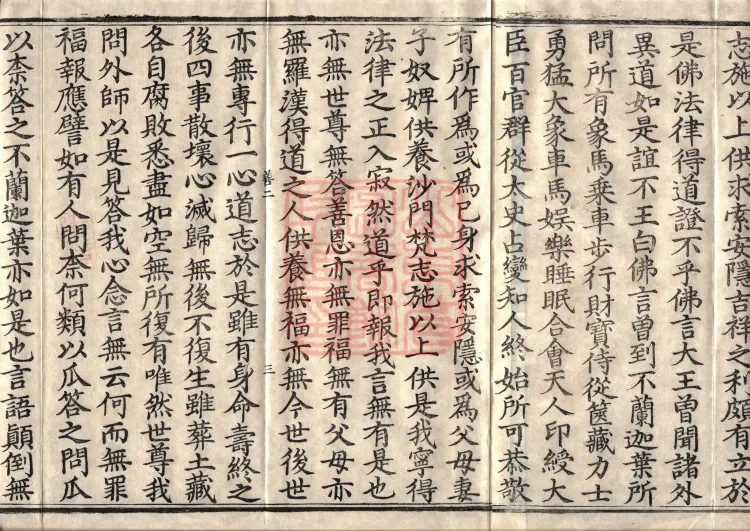 志施以上供求索安隱吉祥之利頗有立於
是佛法律得道證不乎佛言大王曾聞諸外
異道如是誼不王白佛言曾到不蘭迦葉所
問所有象馬乗車步行財寶侍從篋藏力士
勇猛大象車馬娛樂睡眠合會天人印綬大
臣百官群從太史占變知人終始所可恭敬
有所作爲或爲己身求索安隱或爲父母妻
子奴婢供養沙門梵志施以上供是我寧得
法律之正入寂然道乎即報我言無有是也
亦無世尊無答善恩亦無罪福無有父母亦
無羅漢得道之人供養無福亦無今世後世
善二 三
亦無專行一心道志於是雖有身命壽終之
後四事散壞心滅歸無後不復生雖葬土藏
各自腐敗悉盡如空無所復有唯然世尊我
問外師以是見答我心念言無云何而無罪
福報應譬如有人問柰何類以瓜答之問瓜
以柰答之不蘭迦葉亦如是也言語顛倒無